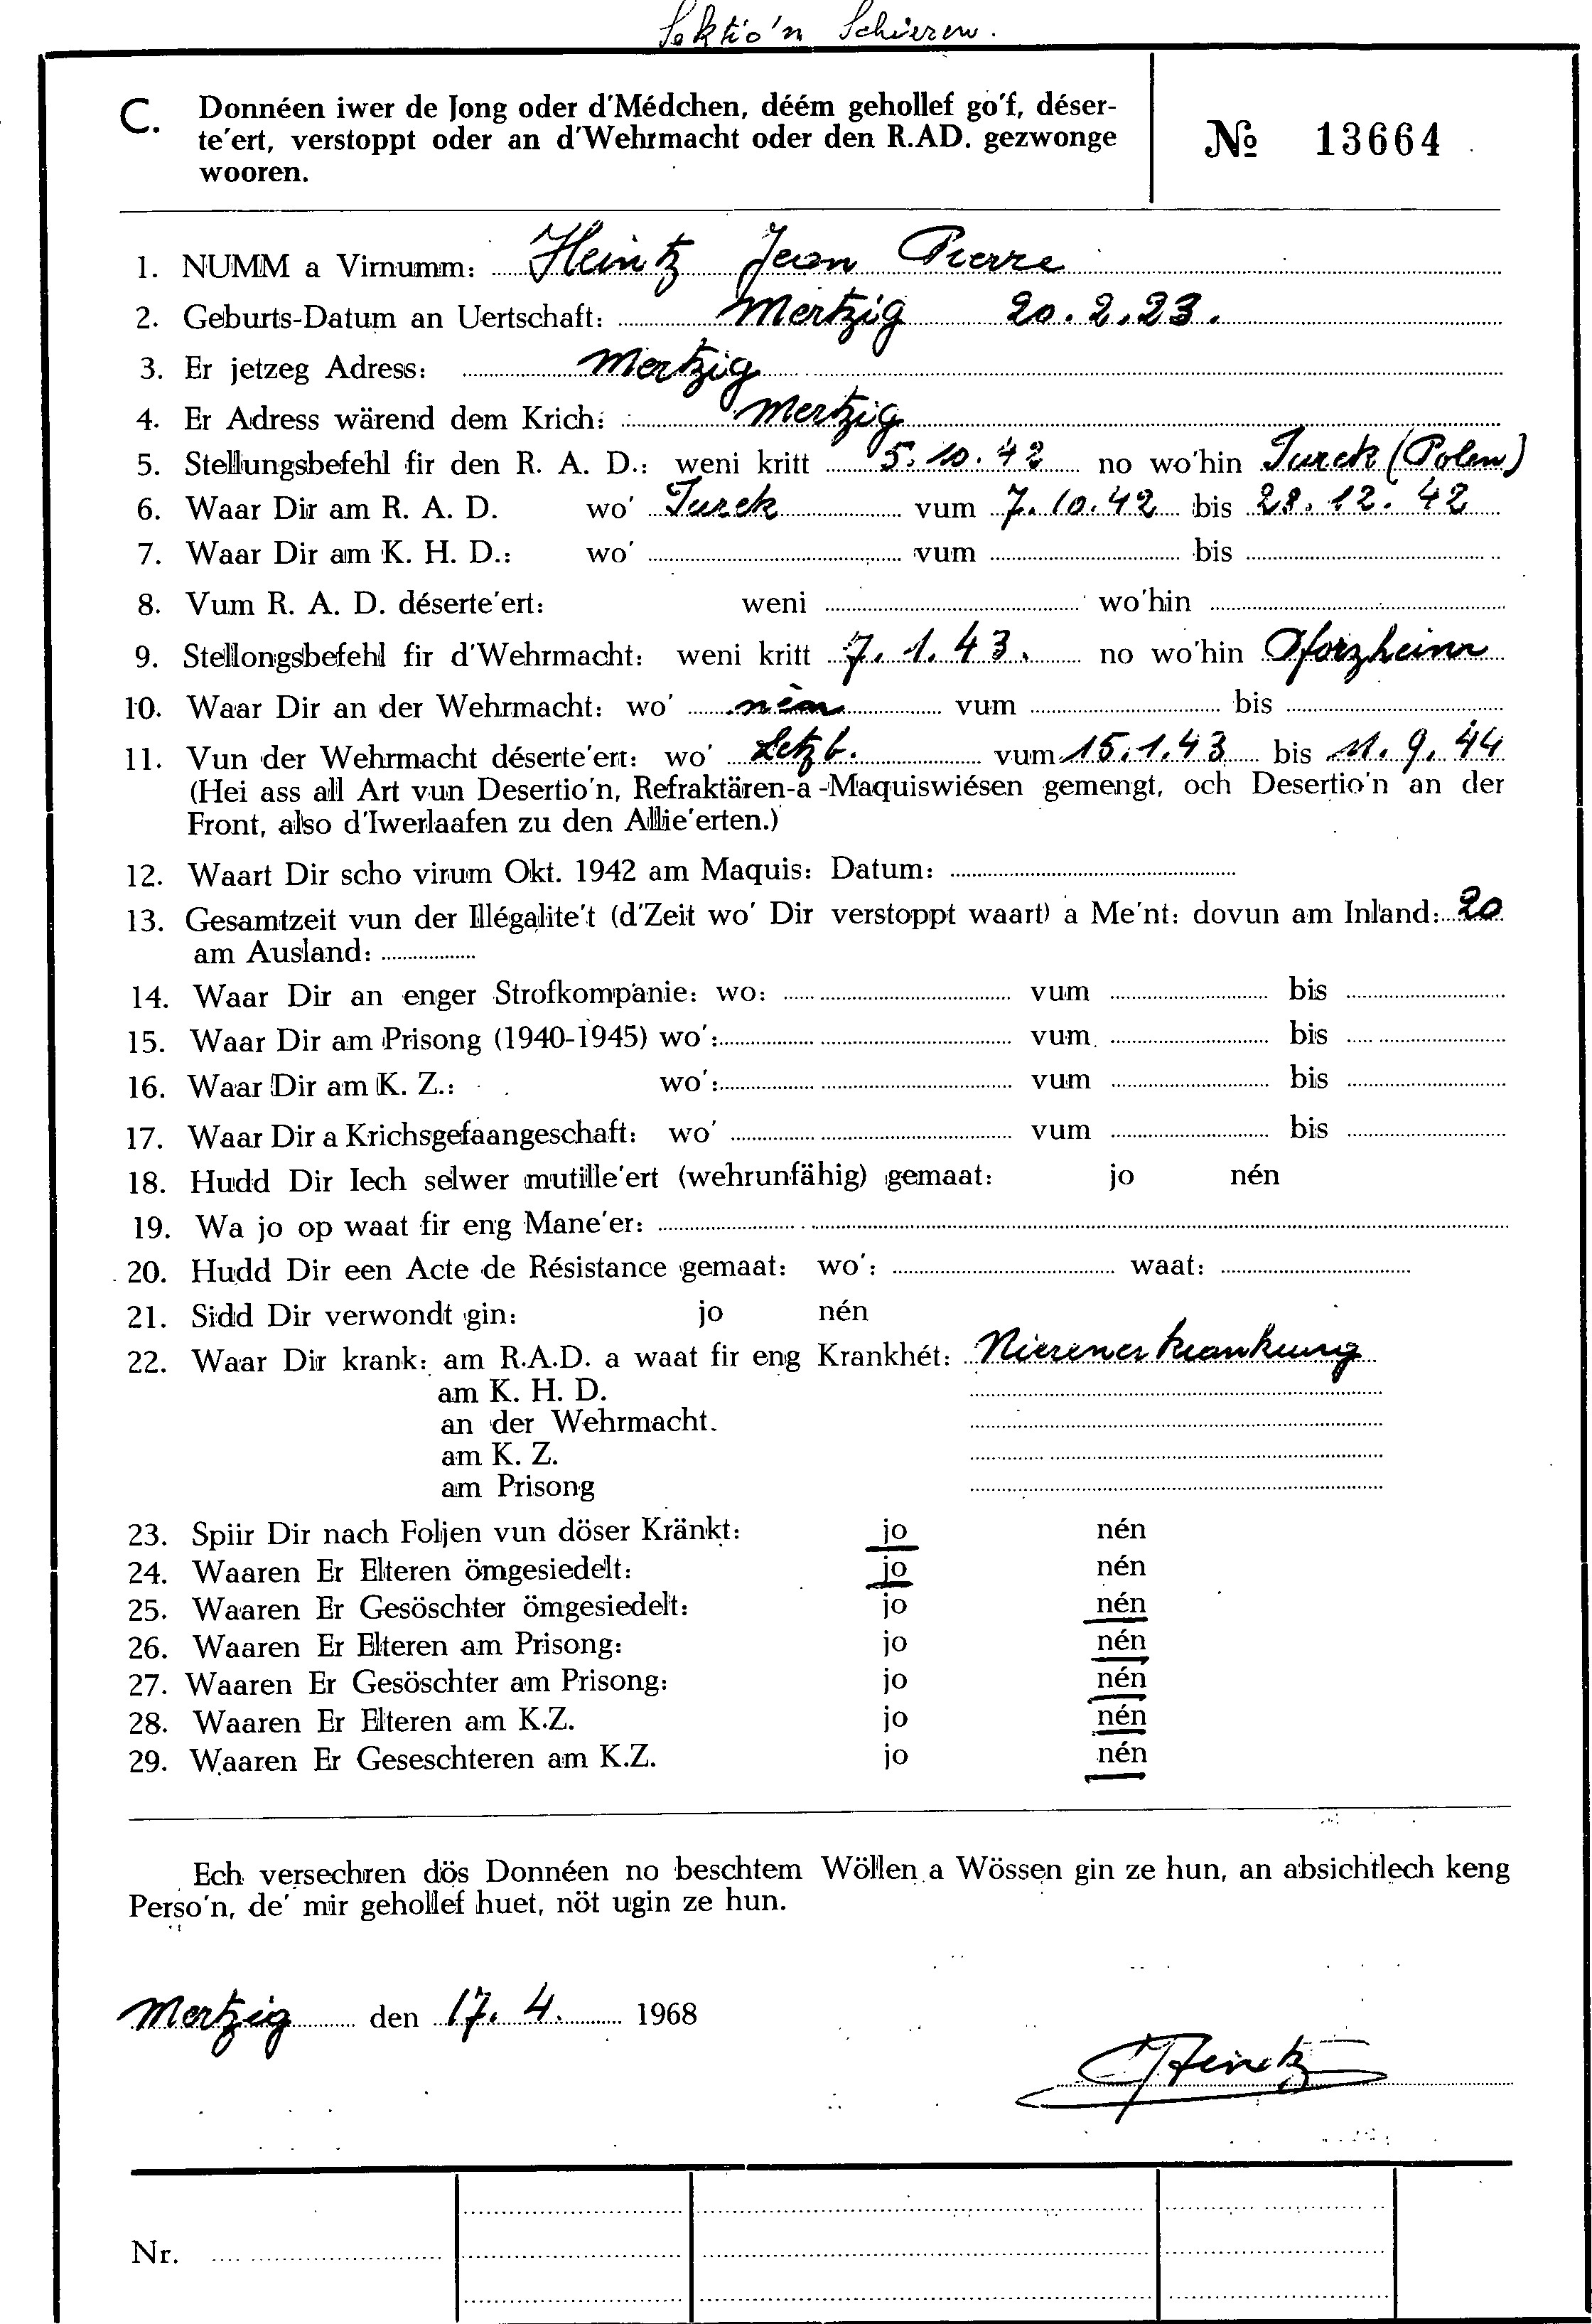 Sektio'n Schieren.
C. Donnéen iwer de Jong oder d'Médchen, déém gehollef go'f, déser-
te'ert, verstoppt oder an d'Wehrmacht oder den R.AD. gezwonge
wooren.
№ 13664
1. NUMM a Virnumm: Heintz Jean Pierre
2. Geburts-Datum an Uertschaft: Mertzig 20.2.23.
3. Er jetzeg Adress: Mertzig
4. Er Adress wärend dem Krich: Mertzig
5. Stellungsbefehl fir den R. A. D.: weni kritt 5.10.42 no wo'hin Turek (Polen)
6. Waar Dir am R. A. D. wo' Turek vum 7.10.42 bis 28.12.42
7. Waar Dir am K. H. D.: wo' vum bis
8. Vum R. A. D. déserte'ert: weni wo'hin
9. Stellongsbefehl fir d'Wehrmacht: weni kritt 7.1.43. no wo'hin Pforzheim
10. Waar Dir an der Wehrmacht: wo' nén vum bis
11. Vun der Wehrmacht déserte'ert: wo' Letzb. vum 15.1.43 bis 11.9.44
(Hei ass all Art vun Desertio'n, Refraktären-a-Maquiswiésen gemengt, och Desertio'n an der
Front, also d'Iwerlaafen zu den Allie'erten.)
12. Waart Dir scho virum Okt. 1942 am Maquis: Datum:
13. Gesamtzeit vun der Illégalite't (d'Zeit wo' Dir verstoppt waart) a Me'nt: dovun am Inland: 20
am Ausland:
14. Waar Dir an enger Strofkompanie: wo: vum bis
15. Waar Dir am Prisong (1940-1945) wo': vum bis
16. Waar Dir am K. Z.: wo': vum bis
17. Waar Dir a Krichsgefaangeschaft: wo' vum bis
18. Hudd Dir Iech selwer mutille'ert (wehrunfähig) gemaat: jo nén
19. Wa jo op waat fir eng Mane'er:
20. Hudd Dir een Acte de Résistance gemaat: wo': waat:
21. Sidd Dir verwondt gin: jo nén
22. Waar Dir krank: am R.A.D. a waat fir eng Krankhét: Nierenerkrankung
am K. H. D.
an der Wehrmacht.
am K. Z.
am Prisong
23. Spiir Dir nach Foljen vun döser Kränkt: jo nén
24. Waaren Er Elteren ömgesiedelt: jo nén
25. Waaren Er Gesöschter ömgesiedelt: jo nén
26. Waaren Er Elteren am Prisong: jo nén
27. Waaren Er Gesöschter am Prisong: jo nén
28. Waaren Er Elteren am K.Z. jo nén
29. Waaren Er Geseschteren am K.Z. jo nén
Ech versechren dös Donnéen no beschtem Wöllen a Wössen gin ze hun, an absichtlech keng
Perso'n, de' mir gehollef huet, nöt ugin ze hun.
Mertzig den 17.4. 1968
Heintz
Nr.